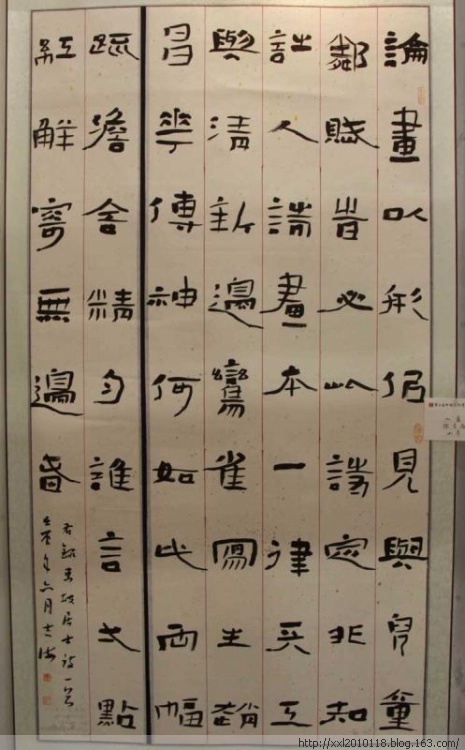 論畫以形侣見與兒童
鄰賦旹必此詩定非知
詩人詩畫本一律天工
與清新邊鸞雀寫生趙
昌華傳神何如此兩幅
疏澹含精勻誰言弌點
紅解寄無邊春
右錄東坡居士詩一首
年六月
http://xxl2010118.blog.163.com/